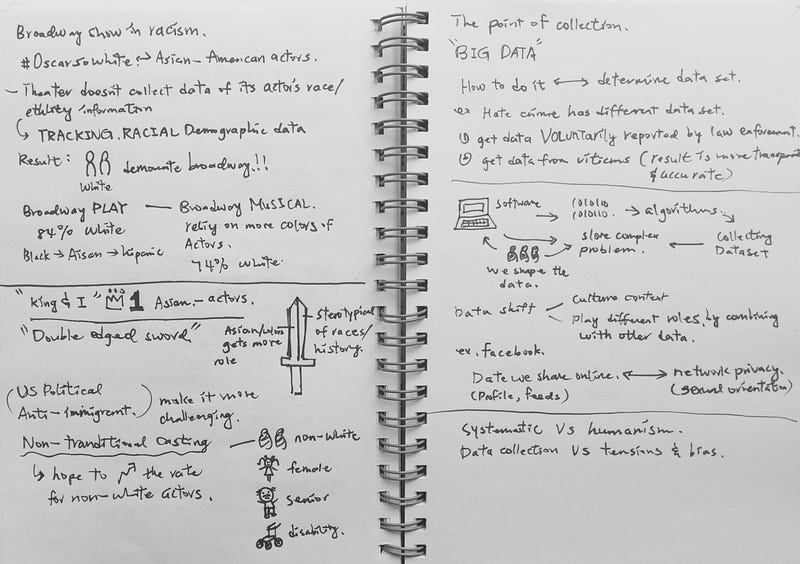 Broadway show in racism.
#OscarsoWhite → Asian-American actors.
- Theater doesn't collect data of its actor's race/
ethnity information
↳ TRACKING. RACIAL Demographic data
Result: demonate broadway!!!
White
Broadway PLAY — Broadway MUSICAL.
84% White
relity on more colors of
Actors.
Black → Aisan → hipanic
74% white.
"King & I" 1 Asian - actors.
"Double edged sword"
Asian/
gets more
role
sterotypical
of races/
history.
(US Political
Anti-immigrant.)
make it more
challenging.
Non-tranditional Casting — non-white
female
senior
disability.
↳ hope to ↗ the rate
for non-white actors.
The point of collection.
"BIG DATA"
How to do it ↔ determine data set.
ex Hate crime has different data set.
① get data VOLUNTARILY reported by law enforcement.
② get data from victems (result is more transparent
& accurate)
Software → 010110
010110. → algorithms.
slove complex
problem. ← Collecting
Dataset
we shape the
data.
Data shift < culture context
play different roles, by combining
with other data.
ex. facebook.
Date we share online. ↔ network privacy.
(Profile, feeds) (sexual orientation)
Systematic VS humanism.
Data collection VS tensions & bias.